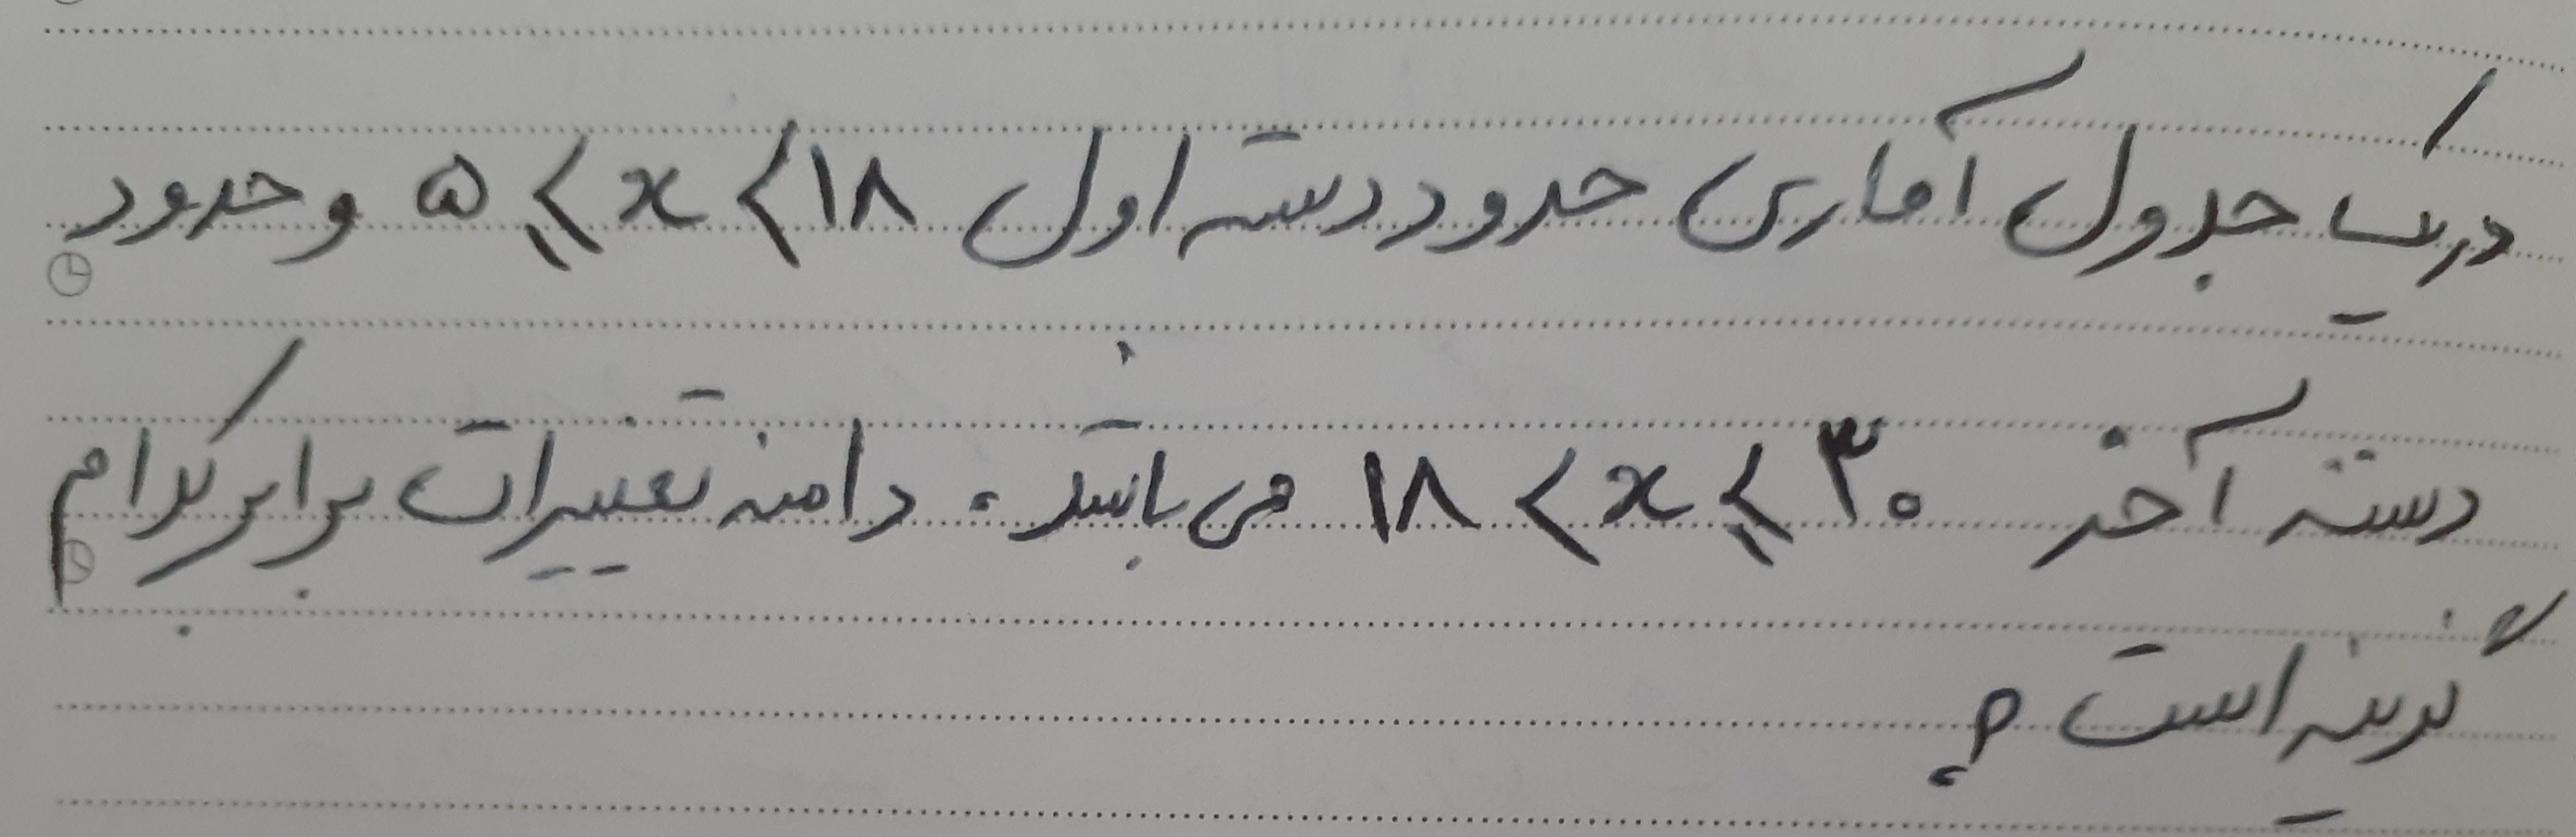 دریک جدول آماری حدود دسته اول ۵ ⩽ x < ۱۸ و حدود
دسته آخر ۱۸ < x ⩽ ۳۰ می باشد. دامنه تغییرات برابر کدام
گزینه است ؟